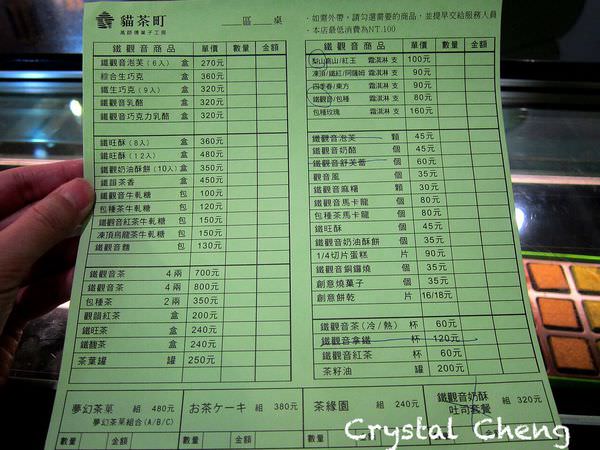 貓茶町
萬師傅菓子工房
區 桌
·如需外帶，請勾選需要的商品，並提早交給服務人員
·本店最低消費為NT.100
鐵觀音商品 單價 數量 金額
鐵觀音泡芙(6入) 盒 270元
綜合生巧克 盒 360元
鐵生巧克(9入) 盒 320元
鐵觀音乳酪 盒 320元
鐵觀音巧克力乳酪 盒 320元
鐵旺酥(8入) 盒 360元
鐵旺酥(12入) 盒 480元
鐵觀音奶油酥餅(10入) 盒 350元
鐵韻茶香 盒 450元
鐵觀音牛軋糖 包 100元
包種茶牛軋糖 包 120元
鐵觀音紅茶牛軋糖 包 150元
凍頂烏龍茶牛軋糖 包 150元
鐵觀音麵 包 130元
鐵觀音茶 4兩 700元
鐵觀音茶 4兩 800元
包種茶 2兩 350元
觀韻紅茶 盒 200元
鐵旺茶 盒 240元
鐵麵茶 盒 240元
茶葉罐 罐 250元
鐵觀音商品 單價 數量 金額
梨山高山/紅玉 霜淇淋 支 100元
凍頂/鐵紅/阿薩姆 霜淇淋 支 90元
四季春/東方 霜淇淋 支 90元
鐵觀音/包種 霜淇淋 支 80元
包種玫瑰 霜淇淋 支 160元
鐵觀音泡芙 顆 45元
鐵觀音奶酪 個 45元
鐵觀音舒芙蕾 個 60元
觀音風 個 35元
鐵觀音麻糬 顆 30元
鐵觀音馬卡龍 個 80元
包種茶馬卡龍 個 80元
鐵旺酥 個 45元
鐵觀音奶油酥餅 個 35元
1/4切片蛋糕 片 90元
鐵觀音銅鑼燒 個 35元
創意燒菓子 個 35元
創意餅乾 片 16/18元
鐵觀音茶(冷/熱) 杯 60元
鐵觀音拿鐵 杯 120元
鐵觀音紅茶 杯 60元
茶籽油 罐 200元
夢幻茶菓 組 480元
夢幻茶菓組合(A/B/C)
お茶ケーキ 組 380元
茶緣園 組 240元
鐵觀音奶酥
吐司套餐 組 320元
數量 金額 數量 金額 數量 金額 數量 金額
Crystal Cheng